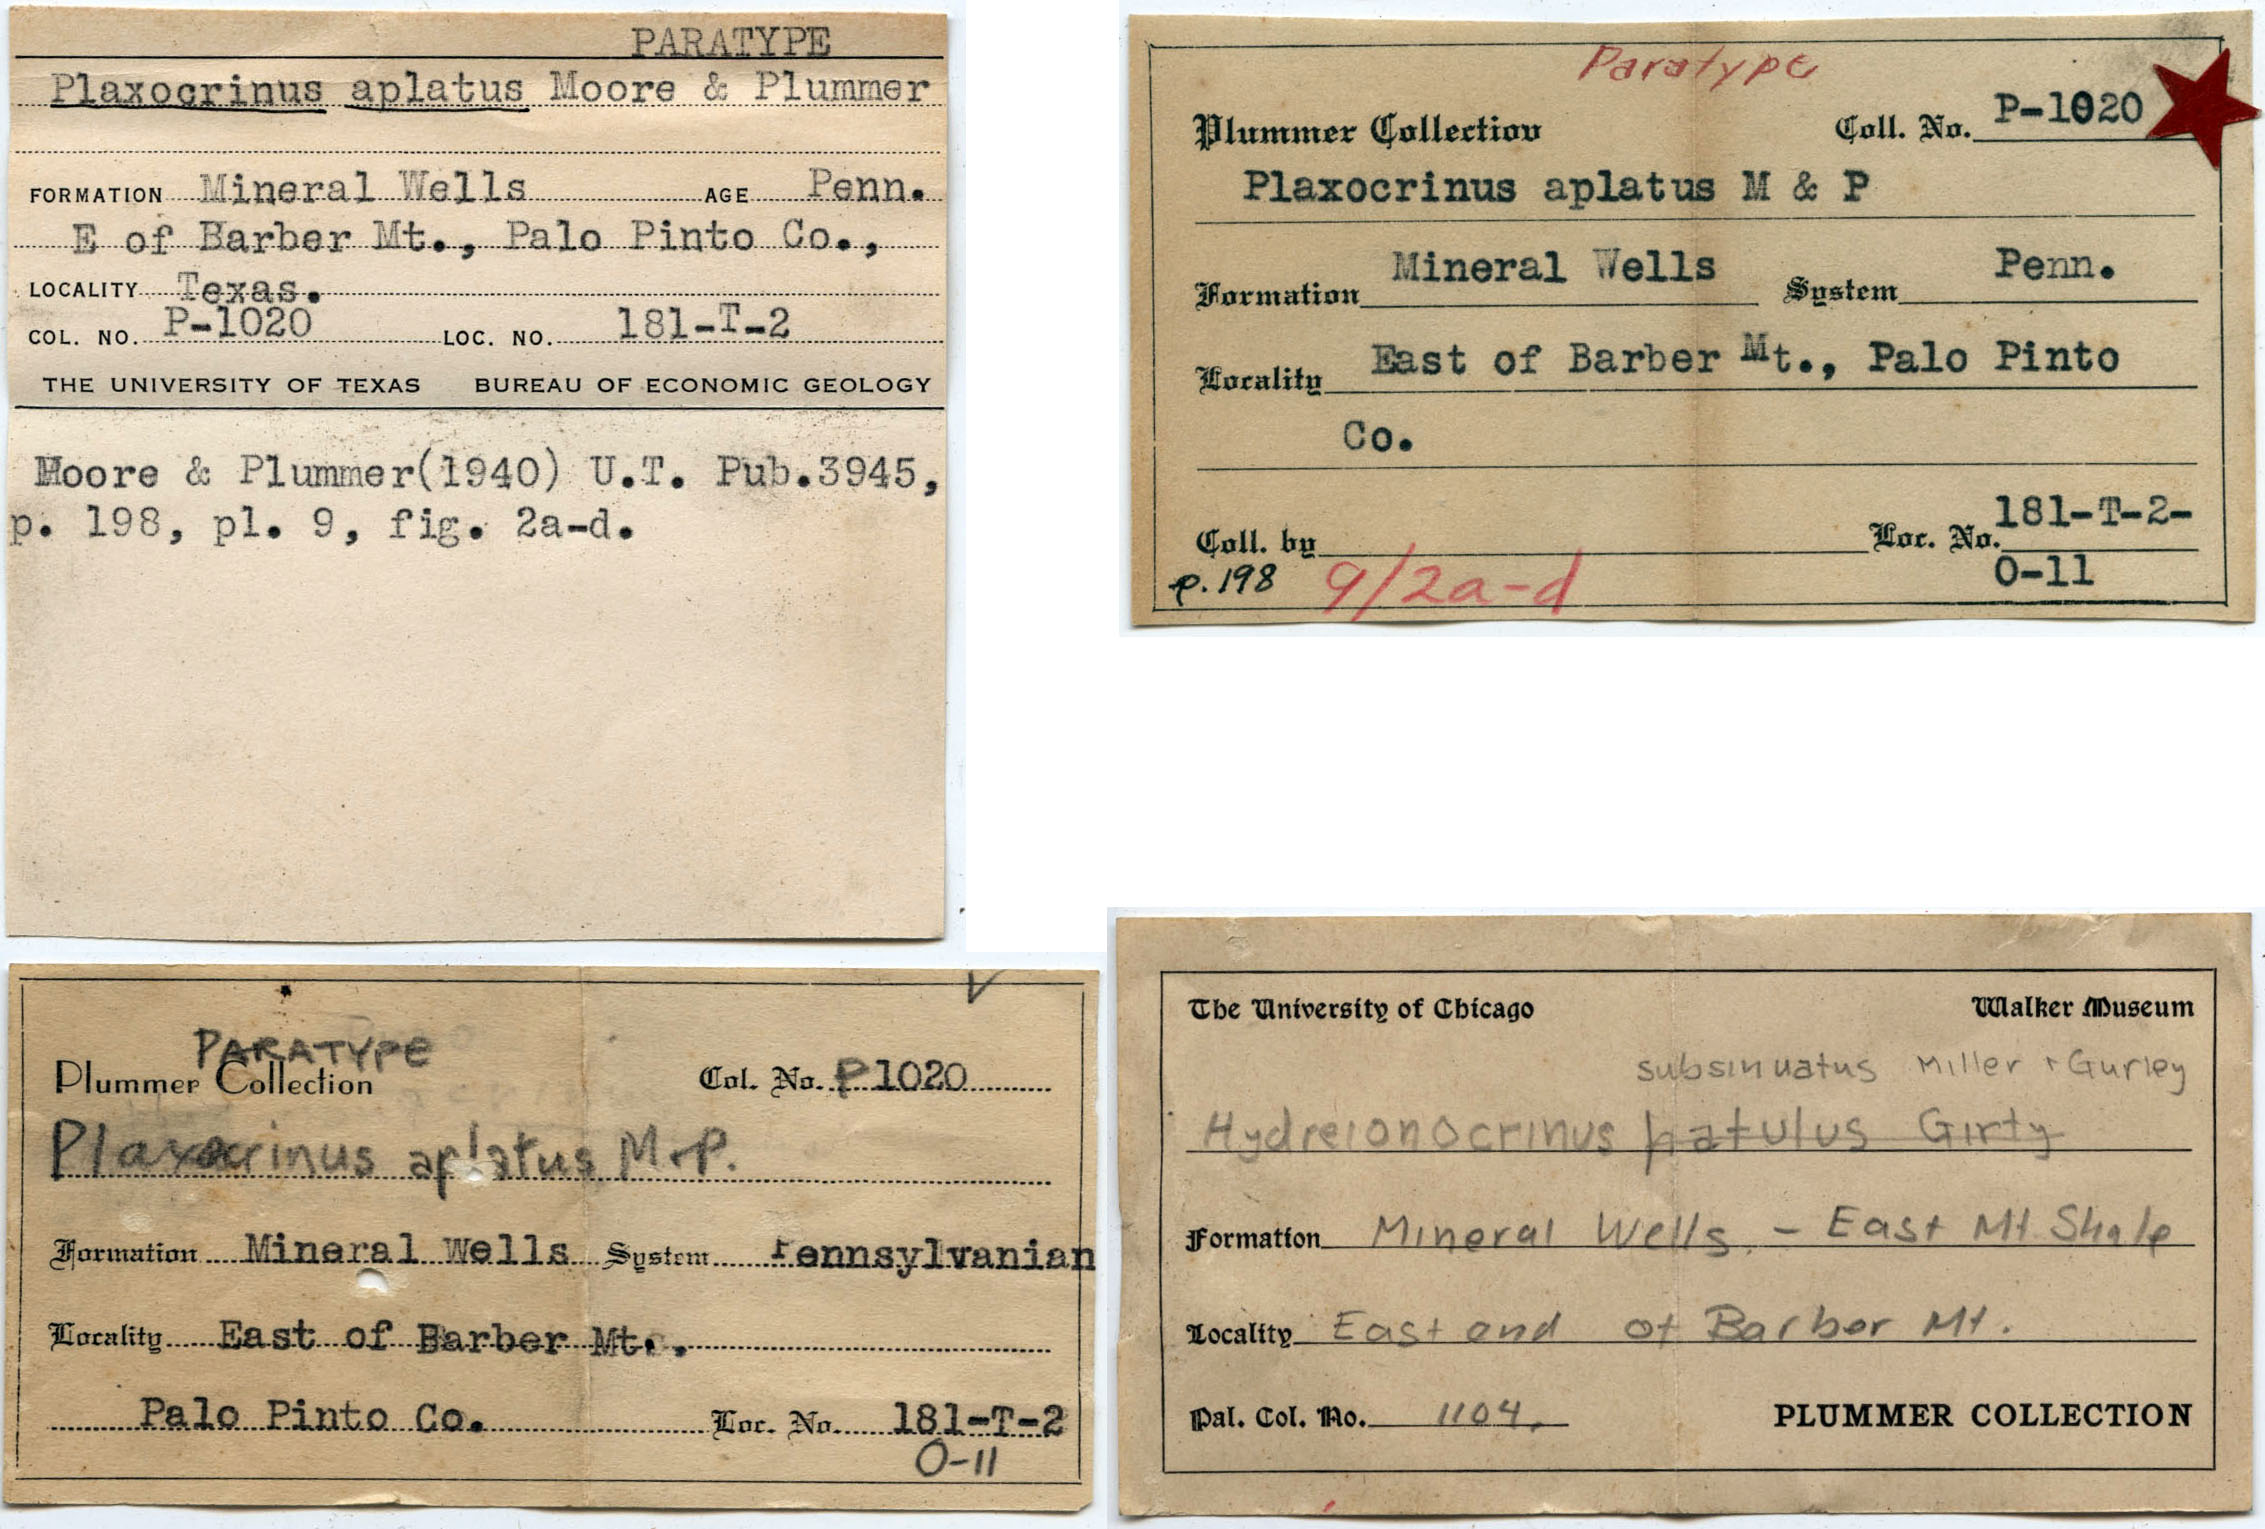 PARATYPE
Plaxocrinus aplatus Moore & Plummer
FORMATION Mineral Wells AGE Penn.
E of Barber Mt., Palo Pinto Co.,
LOCALITY Texas.
COL. NO. P-1020 LOC. NO. 181-T-2
THE UNIVERSITY OF TEXAS BUREAU OF ECONOMIC GEOLOGY
Moore & Plummer(1940) U.T. Pub.3945,
p. 198, pl. 9, fig. 2a-d.
Paratype
Plummer Collection Coll. No. P-1020
Plaxocrinus aplatus M & P
Formation Mineral Wells System Penn.
Locality East of Barber Mt., Palo Pinto
Co.
Coll. by Loc. No. 181-T-2-
O-11
p. 198 9/2a-d
PARATYPE
Plummer Collection Col. No. P1020
Plaxocrinus aplatus M+P.
Formation Mineral Wells System Pennsylvanian
Locality East of Barber Mt.,
Palo Pinto Co. Loc. No. 181-T-2
O-11
The University of Chicago Walker Museum
subsinuatus Miller + Gurley
Hydreionocrinus patulus Girty
Formation Mineral Wells - East Mt Shale
Locality East end of Barber Mt.
Pal. Col. No. 1104. PLUMMER COLLECTION